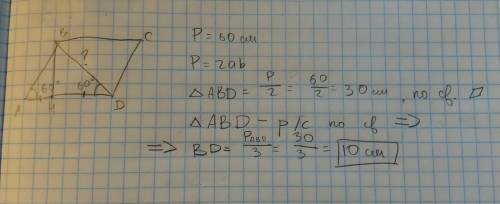 B
C
?
60°
60°
A
H
D
P = 60 см
P = 2ab
△ ABD = P/2 = 60/2 = 30 см, по св. ▱
△ ABD – р/с по св ⇒
⇒ BD = P_ABD/3 = 30/3 = 10 см